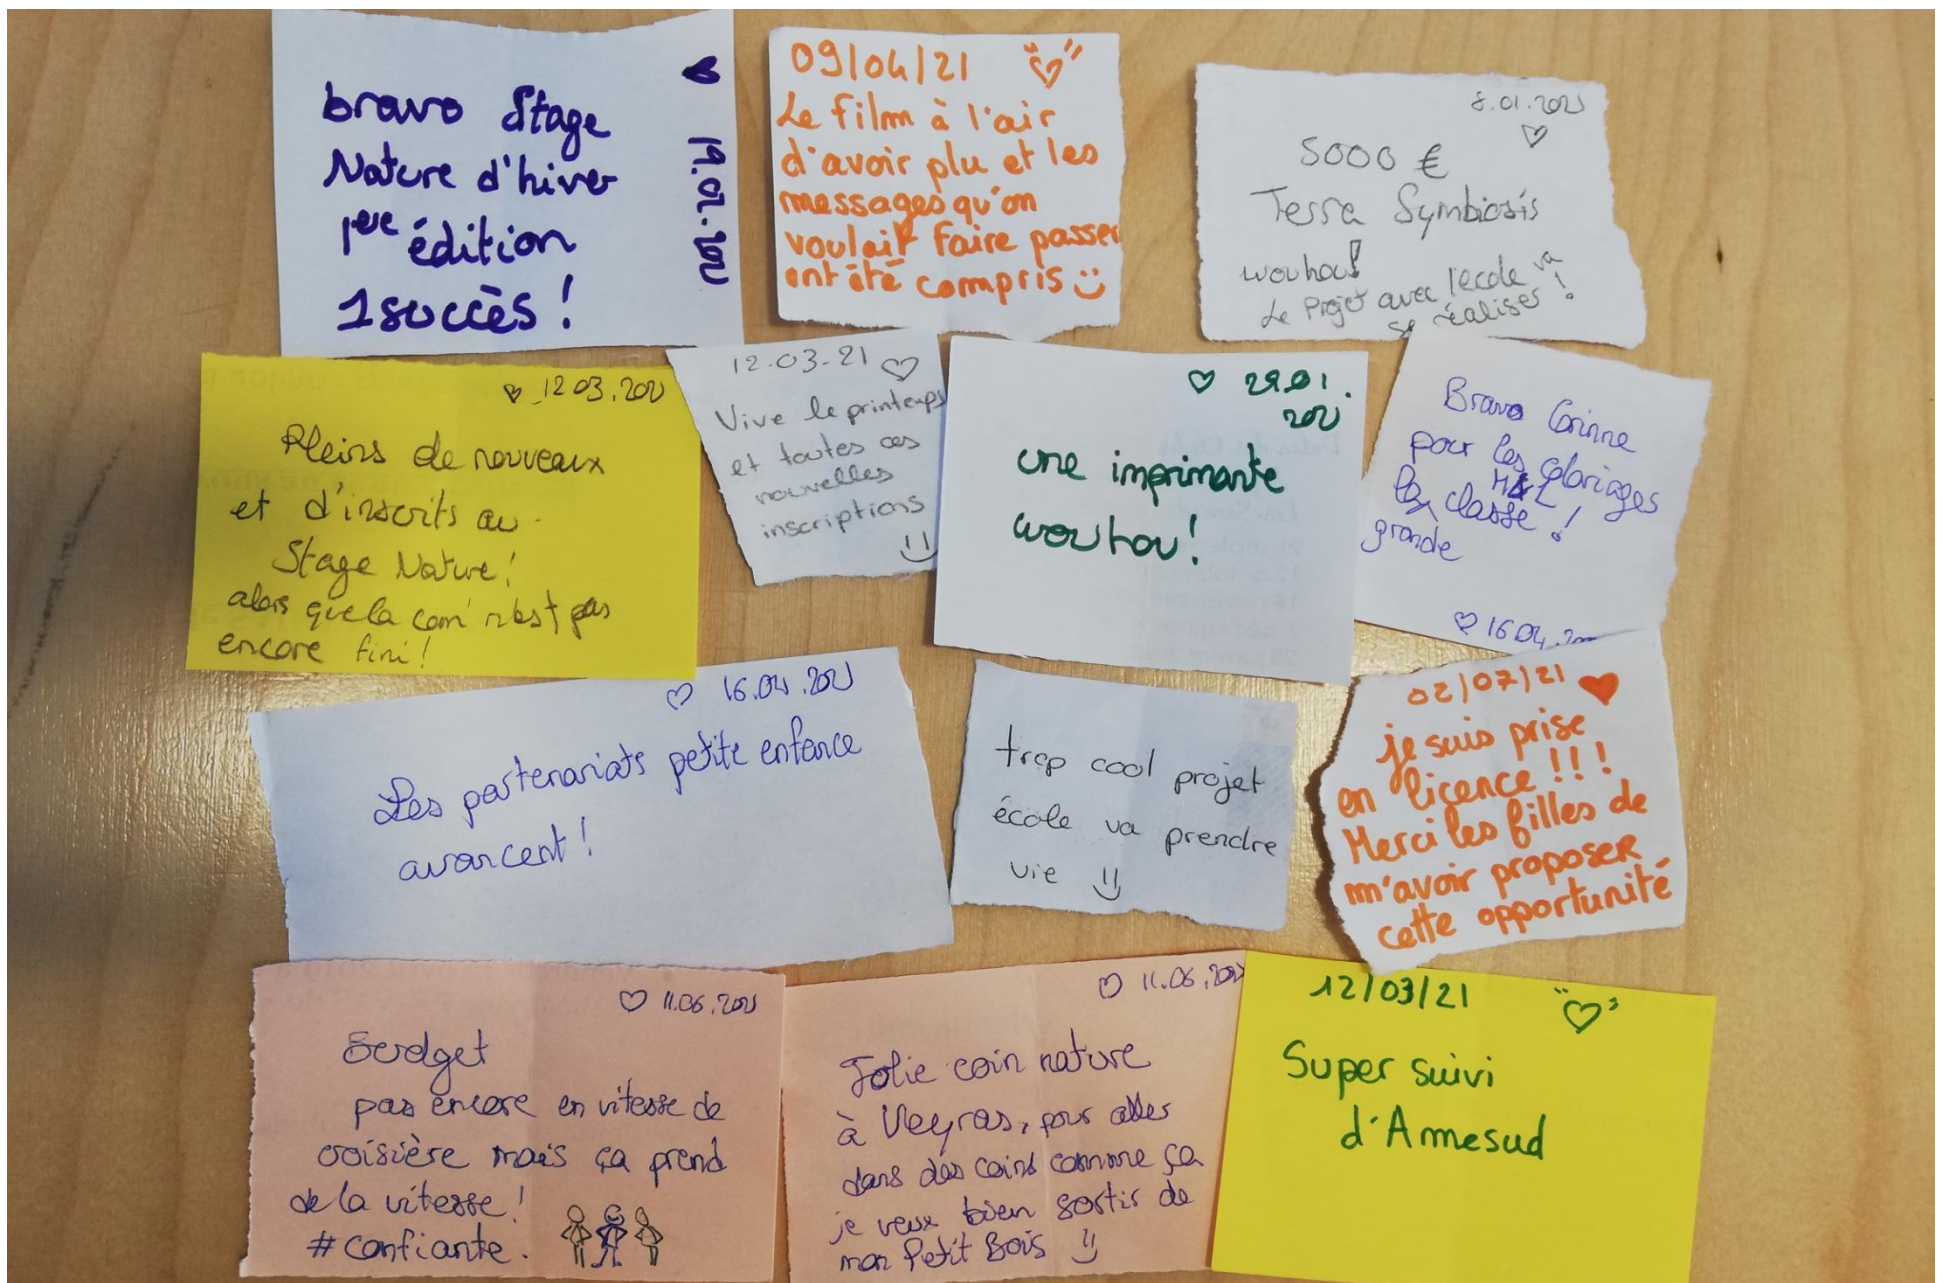 bravo Stage
Nature d'hiver
1ere édition
1 succès !
19.02.2021
09/04/21
Le film à l'air
d'avoir plu et les
messages qu'on
voulait faire passer
ont été compris
8.01.2021
5000 €
Terra Symbiosis
wouhou!
Le Projet avec l'ecole va
se réaliser !
12.03.2021
Pleins de nouveaux
et d'inscrits au
Stage Nature!
alors que la com' n'est pas
encore fini!
12-03-21
Vive le printemps
et toutes ces
nouvelles
inscriptions
29.01.
2021
une imprimante
wouhou!
Bravo Corinne
pour les coloriages
H&L
la classe !
grande
16.04.
16.04.2021
Les partenariats petite enfance
avancent !
trop cool projet
école va prendre
vie
02/07/21
je suis prise
en licence !!!
Merci les filles de
m'avoir proposer
cette opportunité
11.06.2021
Budget
pas encore en vitesse de
croisière mais ça prend
de la vitesse!
#confiante.
11.06.2021
Jolie coin nature
à Veyras, pour aller
dans des coins comme ça
je veux bien sortir de
mon Petit Bois
12/03/21
Super suivi
d'Amesud